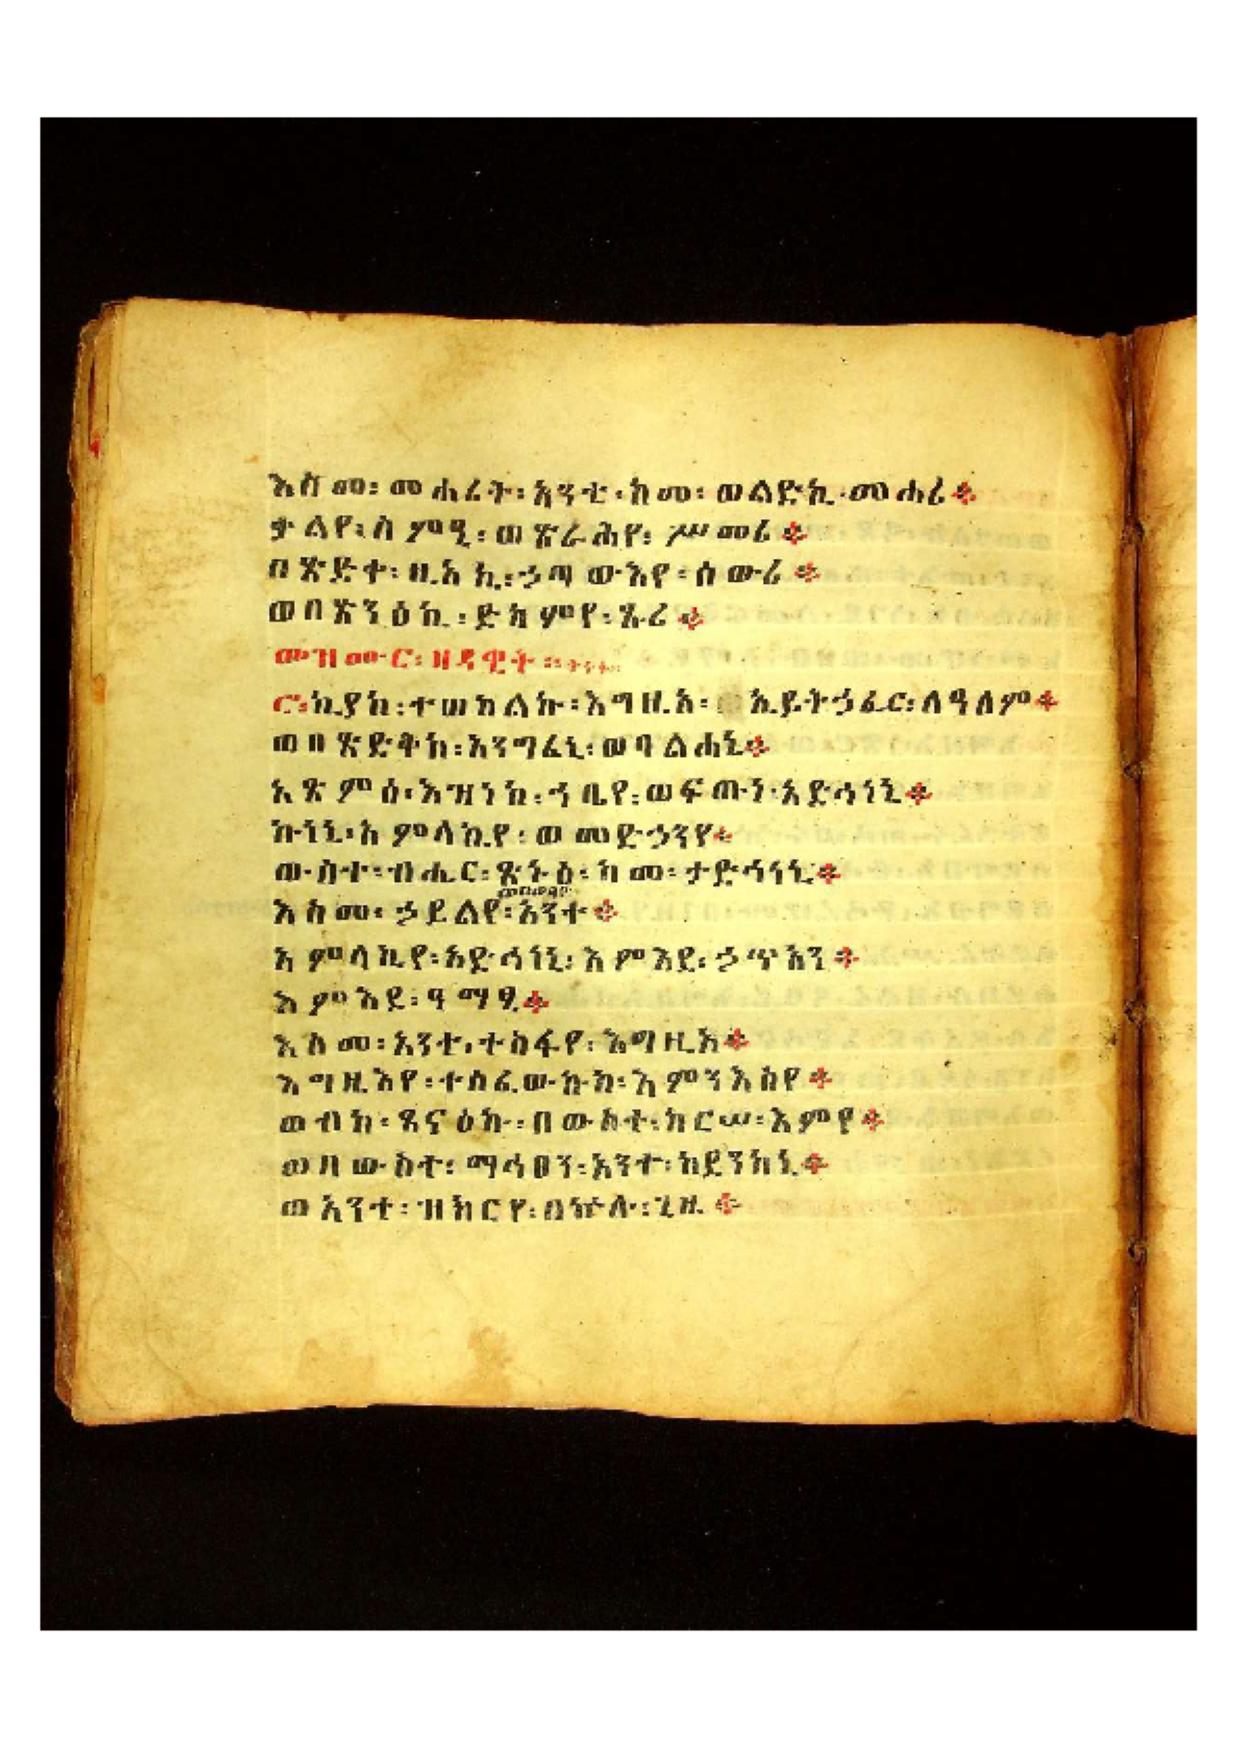 እስመ፡ መሐሪት፡ አንቲ፡ ከመ፡ ወልድኪ፡ መሐሪ።
ቃልየ፡ ስምዒ፡ ወጽራሕየ፡ ሥመሪ።
በጽድቀ፡ ዚአኪ፡ ኃጣውእየ፡ ሰውሪ።
ወበጽንዕኪ፡ ድካምየ፡ ጹሪ።
መዝሙር፡ ዘዳዊት።
፸፡ ኪያከ፡ ተወከልኩ፡ እግዚአ፡ ኢይትኃፈር፡ ለዓለም።
ወበጽድቅከ፡ አንግፈኒ፡ ወባልሐኒ።
አጽምዕ፡ እዝነከ፡ ኀቤየ፡ ወፍጡነ፡ አድኅነኒ።
ኩነኒ፡ አምላኪየ፡ ወመድኃንየ።
ውስተ፡ ብሔር፡ ጽኑዕ፡ ከመ፡ ታድኅነኒ።
እስመ፡ ኃይልየ፡ አንተ።
አምላኪየ፡ አድኅነኒ፡ እምእደ፡ ኃጥአን።
እምእደ፡ ዓማፂ።
እስመ፡ አንተ፡ ተስፋየ፡ እግዚአ።
እግዚእየ፡ ተሰፈውኩከ፡ እምንእስየ።
ወብከ፡ ጸናዕኩ፡ በውስተ፡ ከርሠ፡ እምየ።
ወበውስተ፡ ማኅፀን፡ አንተ፡ ከደንከኒ።
ወአንተ፡ ዝክርየ፡ በኵሉ፡ ጊዜ።